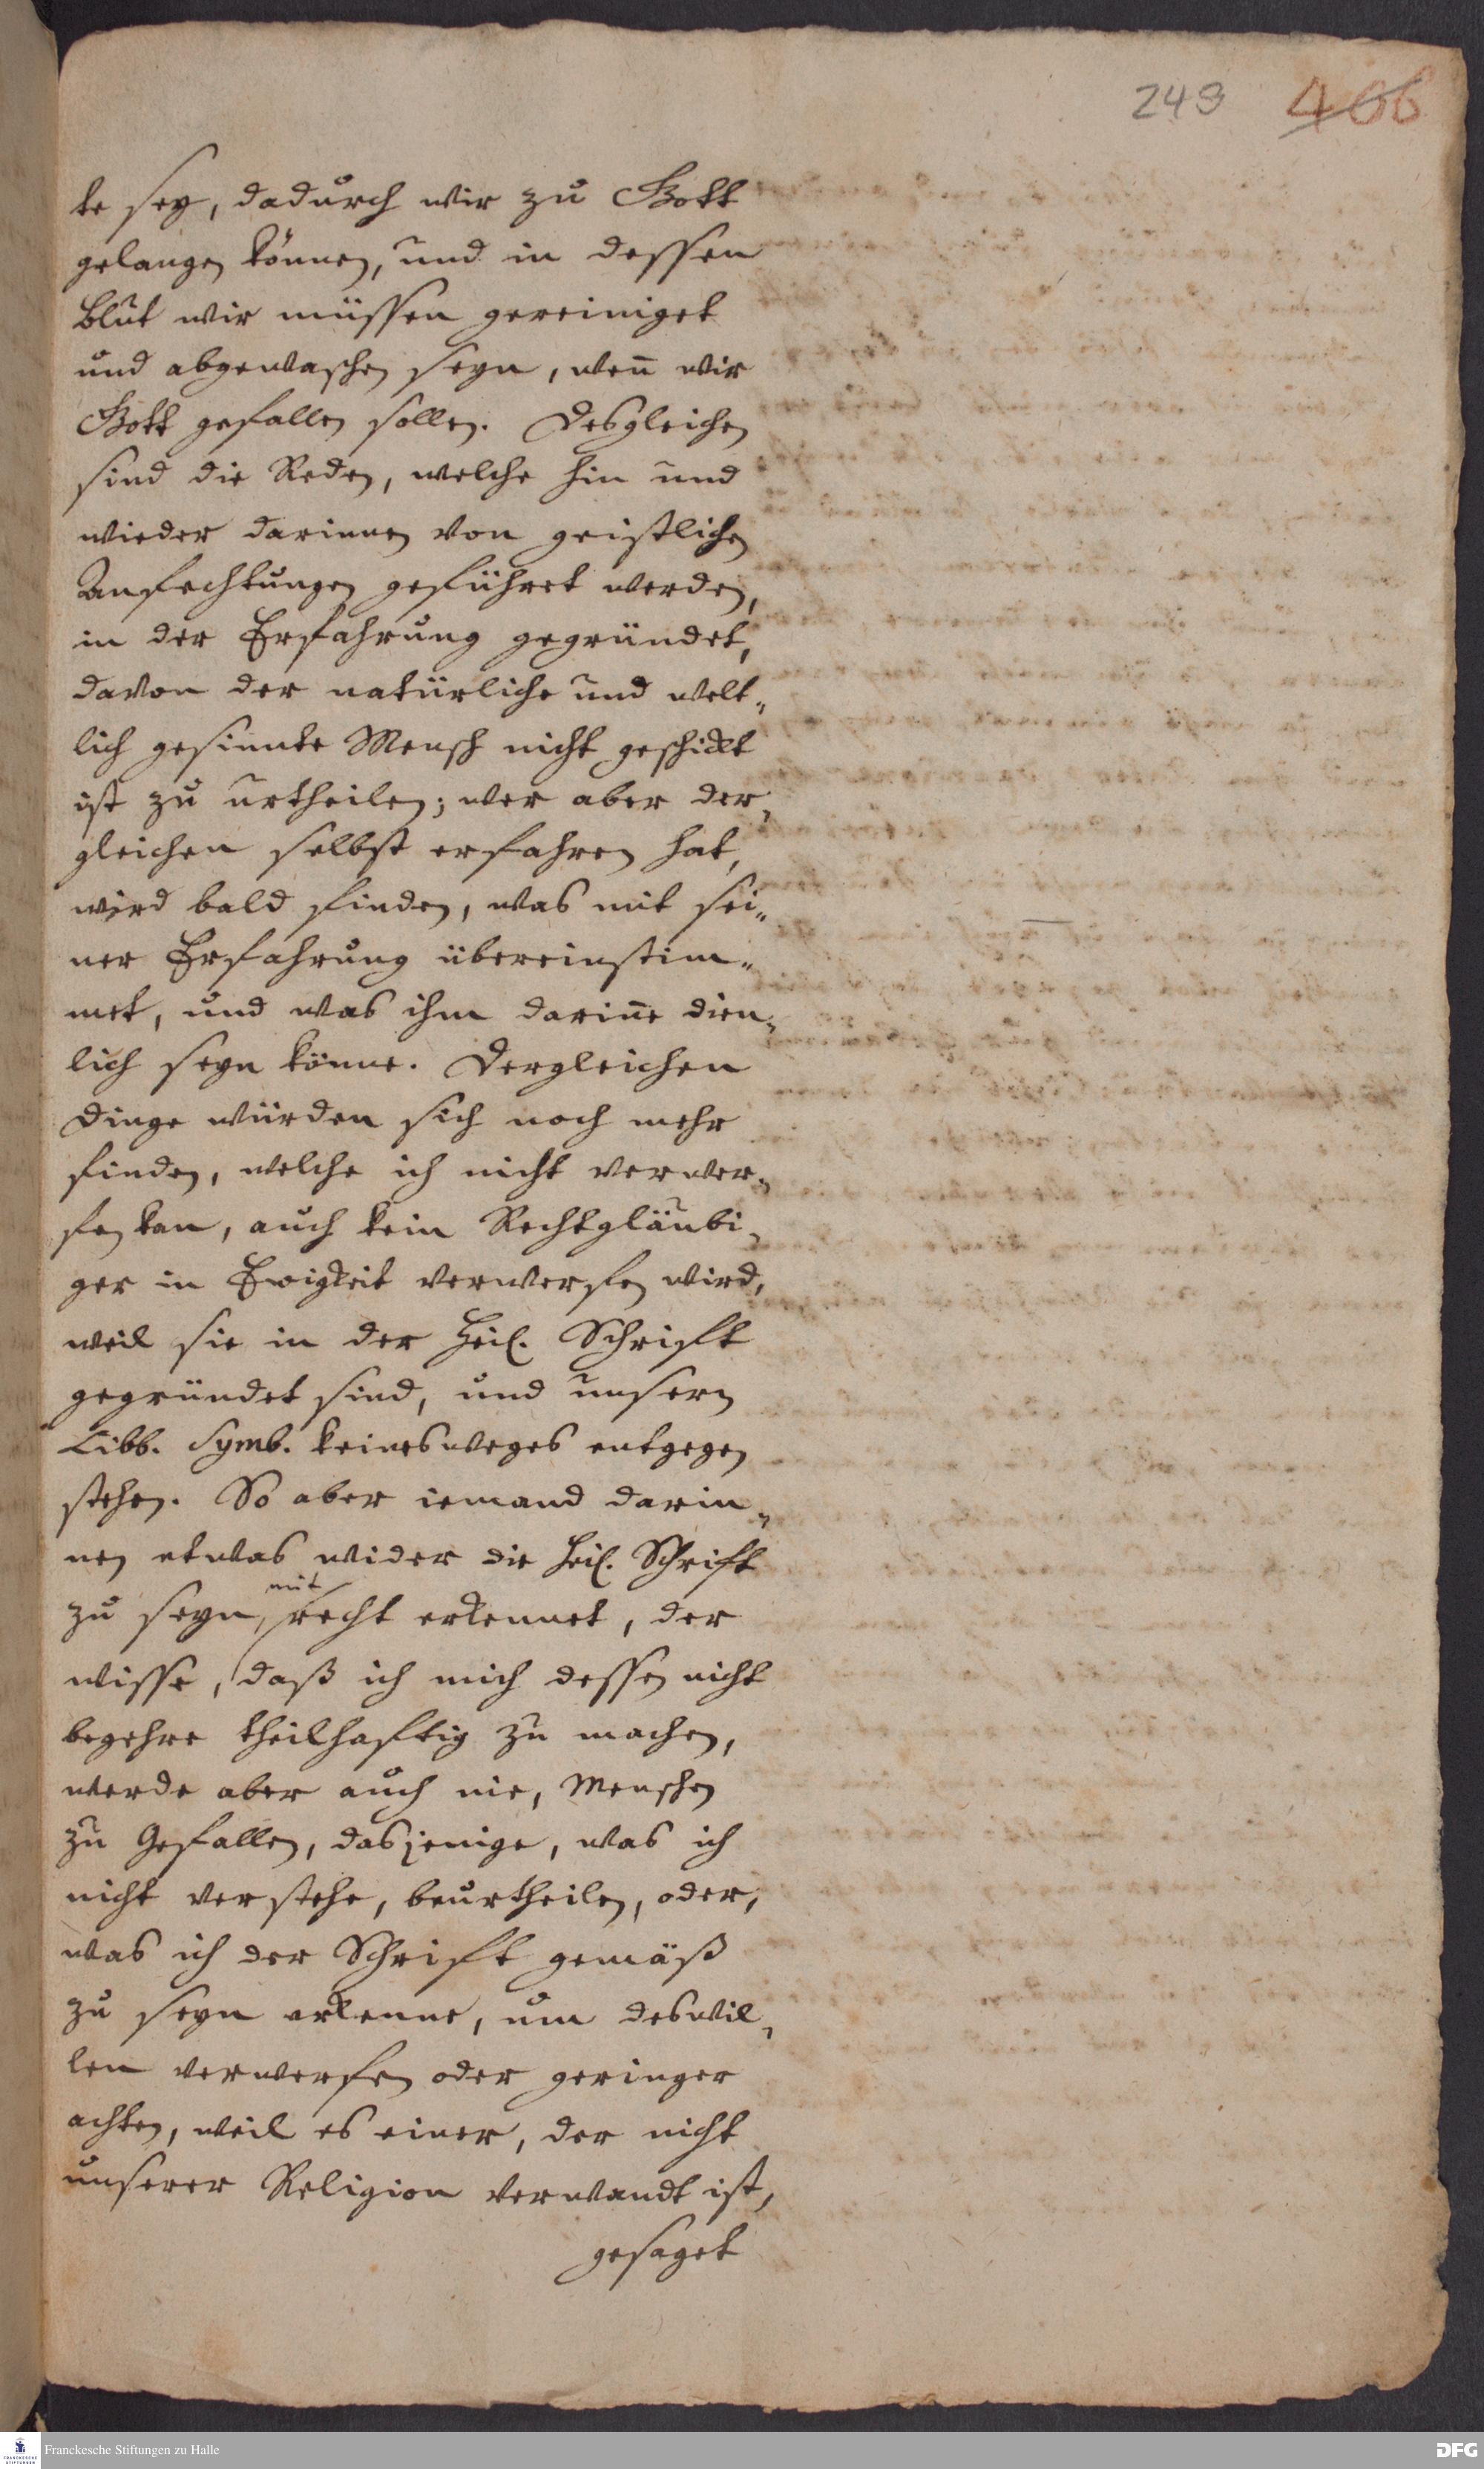 249 406
te sey, dadurch wir zu Gott
gelangen können, und in dessen
Blut wir müssen gereiniget
und abgewaschen seyn, weñ wir
Gott gefallen sollen. Desgleichen
sind die Reden, welche hin und
wieder darinnen von geistlichen
Anfechtungen geführet werden,
in der Erfahrung gegründet,
davon der natürliche und welt-
lich gesinnte Mensch nicht geschickt
ist zu urtheilen; wer aber der-
gleichen selbst erfahren hat,
wird bald finden, was mit sei-
ner Erfahrung übereinstim-
met, und was ihm dariñe dien-
lich seyn könne. Dergleichen
Dinge würden sich noch mehr
finden, welche ich nicht verwer-
fen kan, auch kein Rechtgläubi-
ger in Ewigkeit verwerfen wird,
weil sie in der Heil. Schrift
gegründet sind, und unsern
Libb. Symb. keinesweges entgegen
stehen. So aber iemand darin-
nen etwas wider die Heil. Schrift
zu seyn, mit recht erkennet, der
wisse, daß ich mich dessen nicht
begehre theilhaftig zu machen,
werde aber auch nie, Menschen
zu Gefallen, dasjenige, was ich
nicht verstehe, beurtheilen, oder,
was ich der Schrift gemäß
zu seyn erkenne, um deswil-
len verwerfen oder geringer
achten, weil es einer, der nicht
unserer Religion verwandt ist,
gesaget
Franckesche Stiftungen zu Halle
DFG